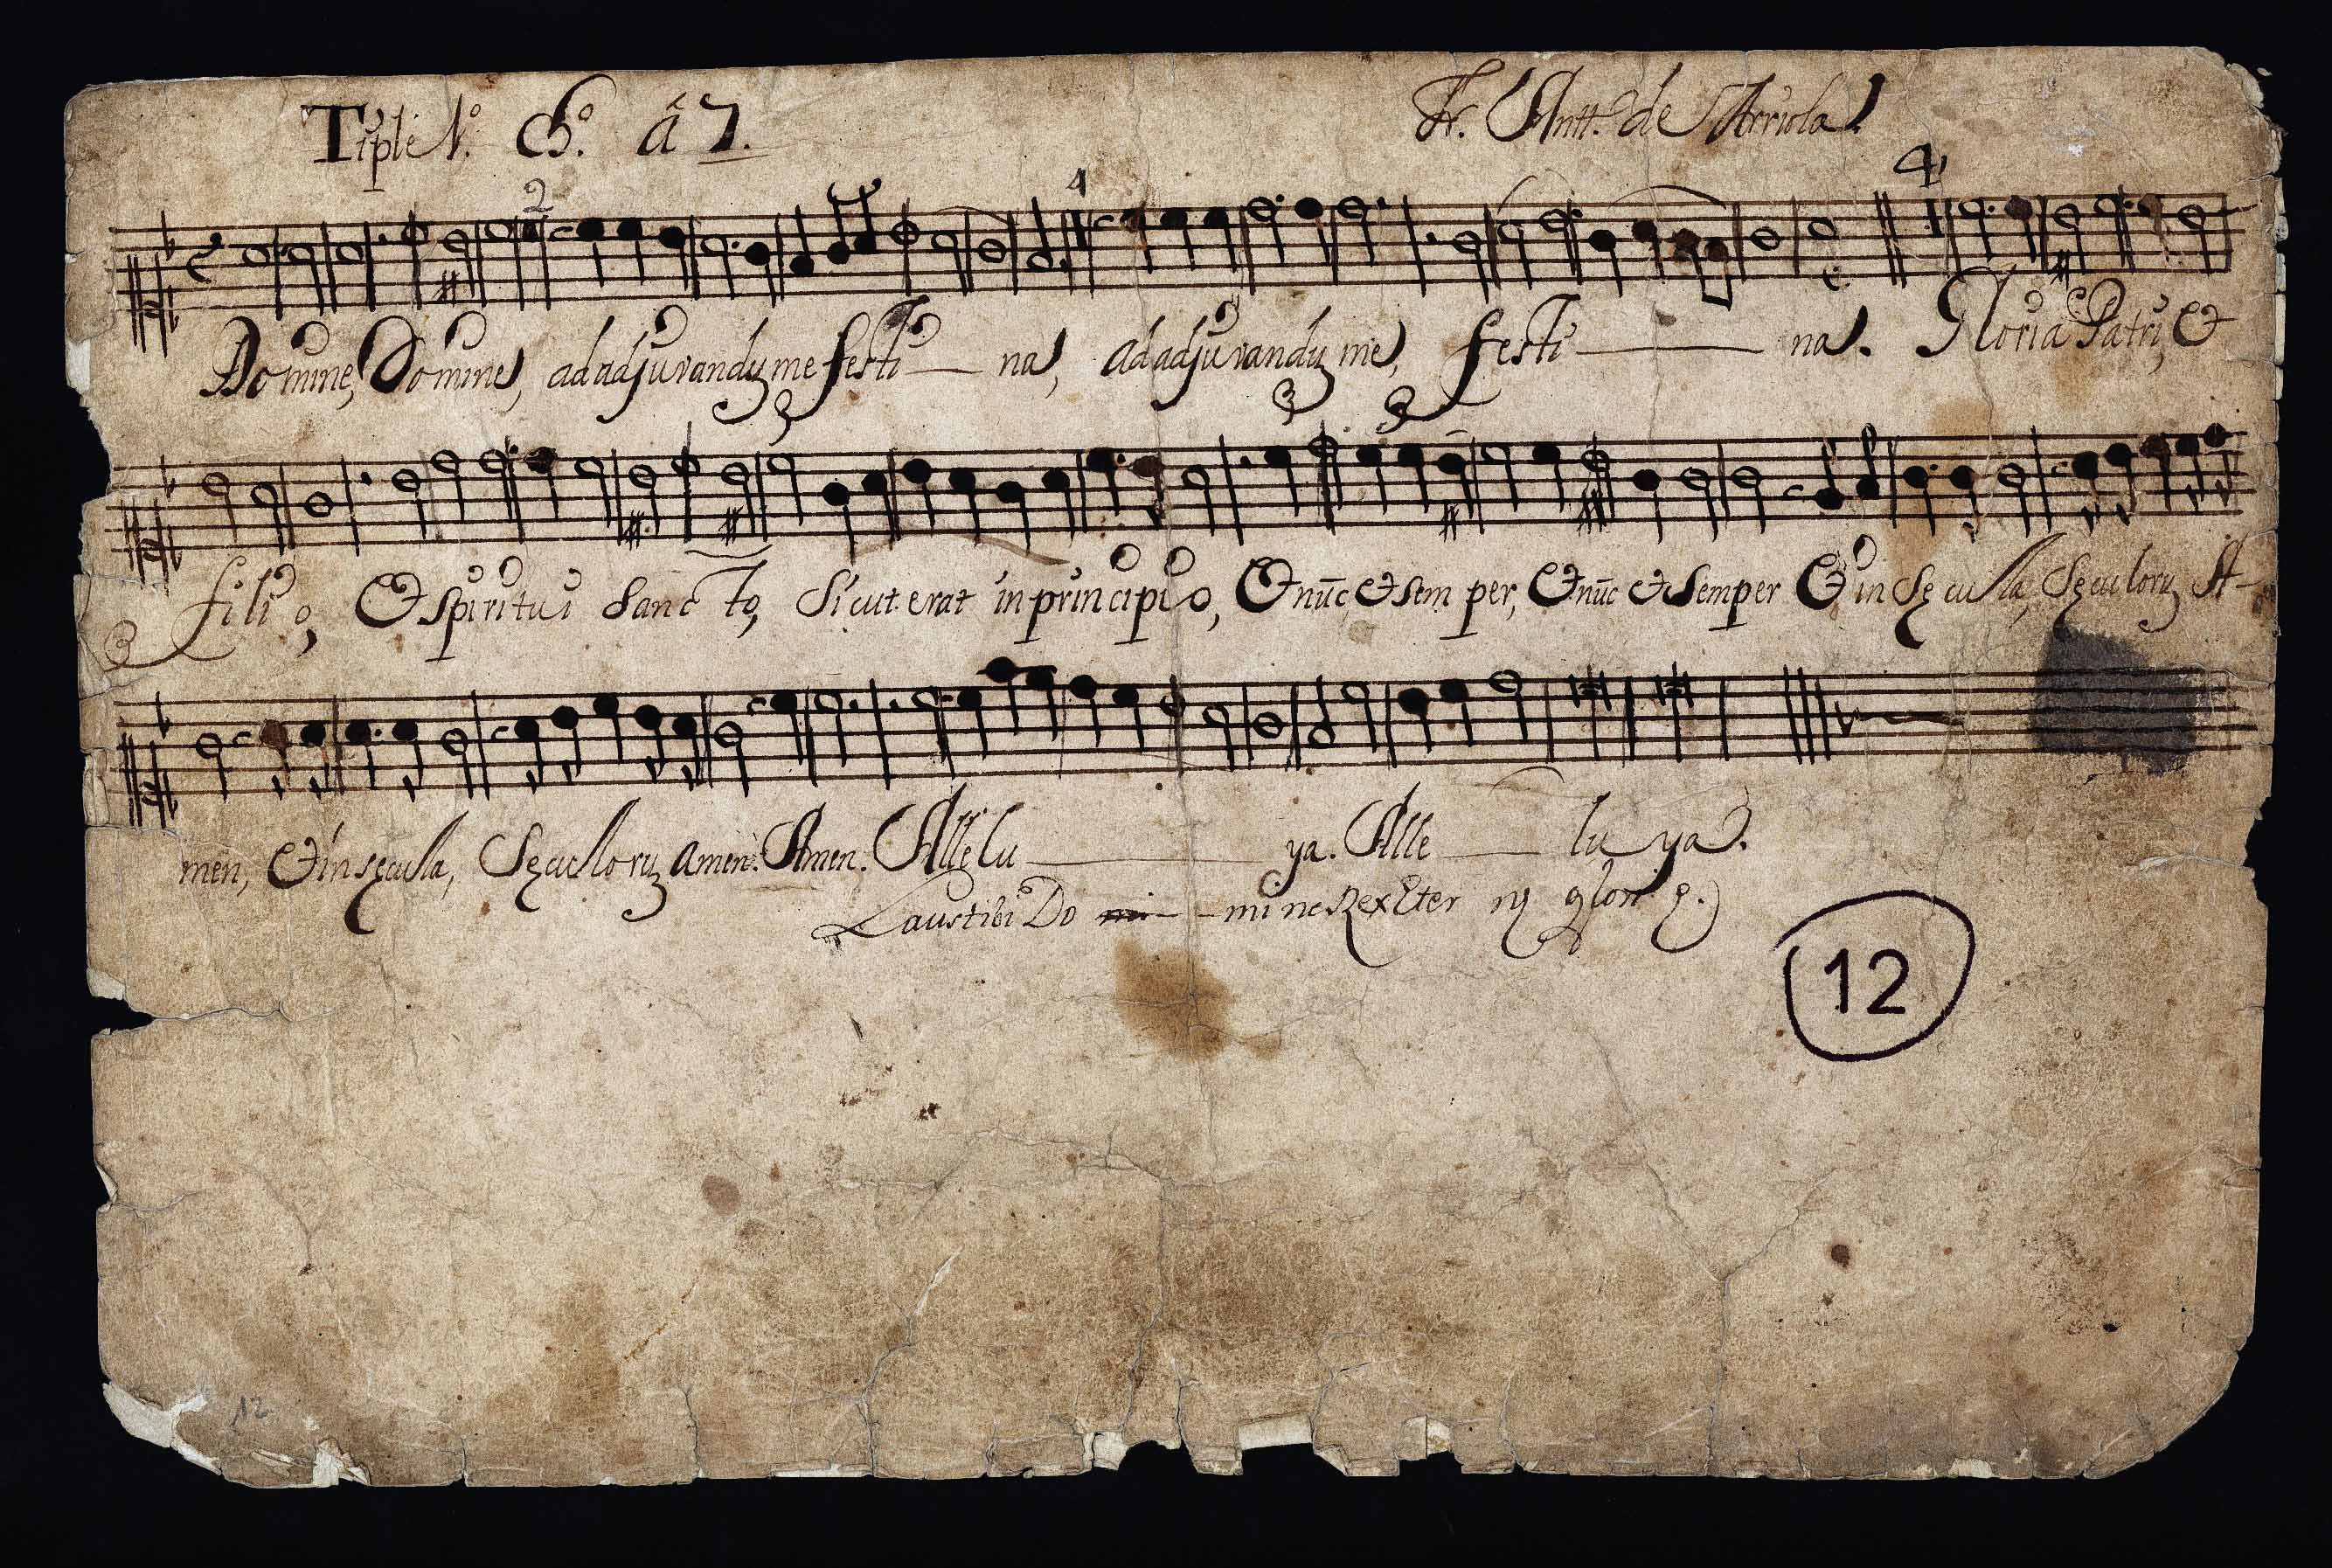 Tiple 1º. Chº. â 7. Fr. Antt.º de Arriola.
2 4 4
Domine, Domine, ad adjuvanduz me festi — na, ad adjuvanduz me, festi — na. Gloria Patri, &
filio, & spiritui sancto, sicut erat in principio, & nũc & semper, & nũc & semper & in sęcula, sęculoruz A-
men, & in sęcula, sęculoruz amen. Amen. Allelu — ya. Alle — lu ya.
Laus tibi Do mi - mine Rex Eter nę glorię.
12
12